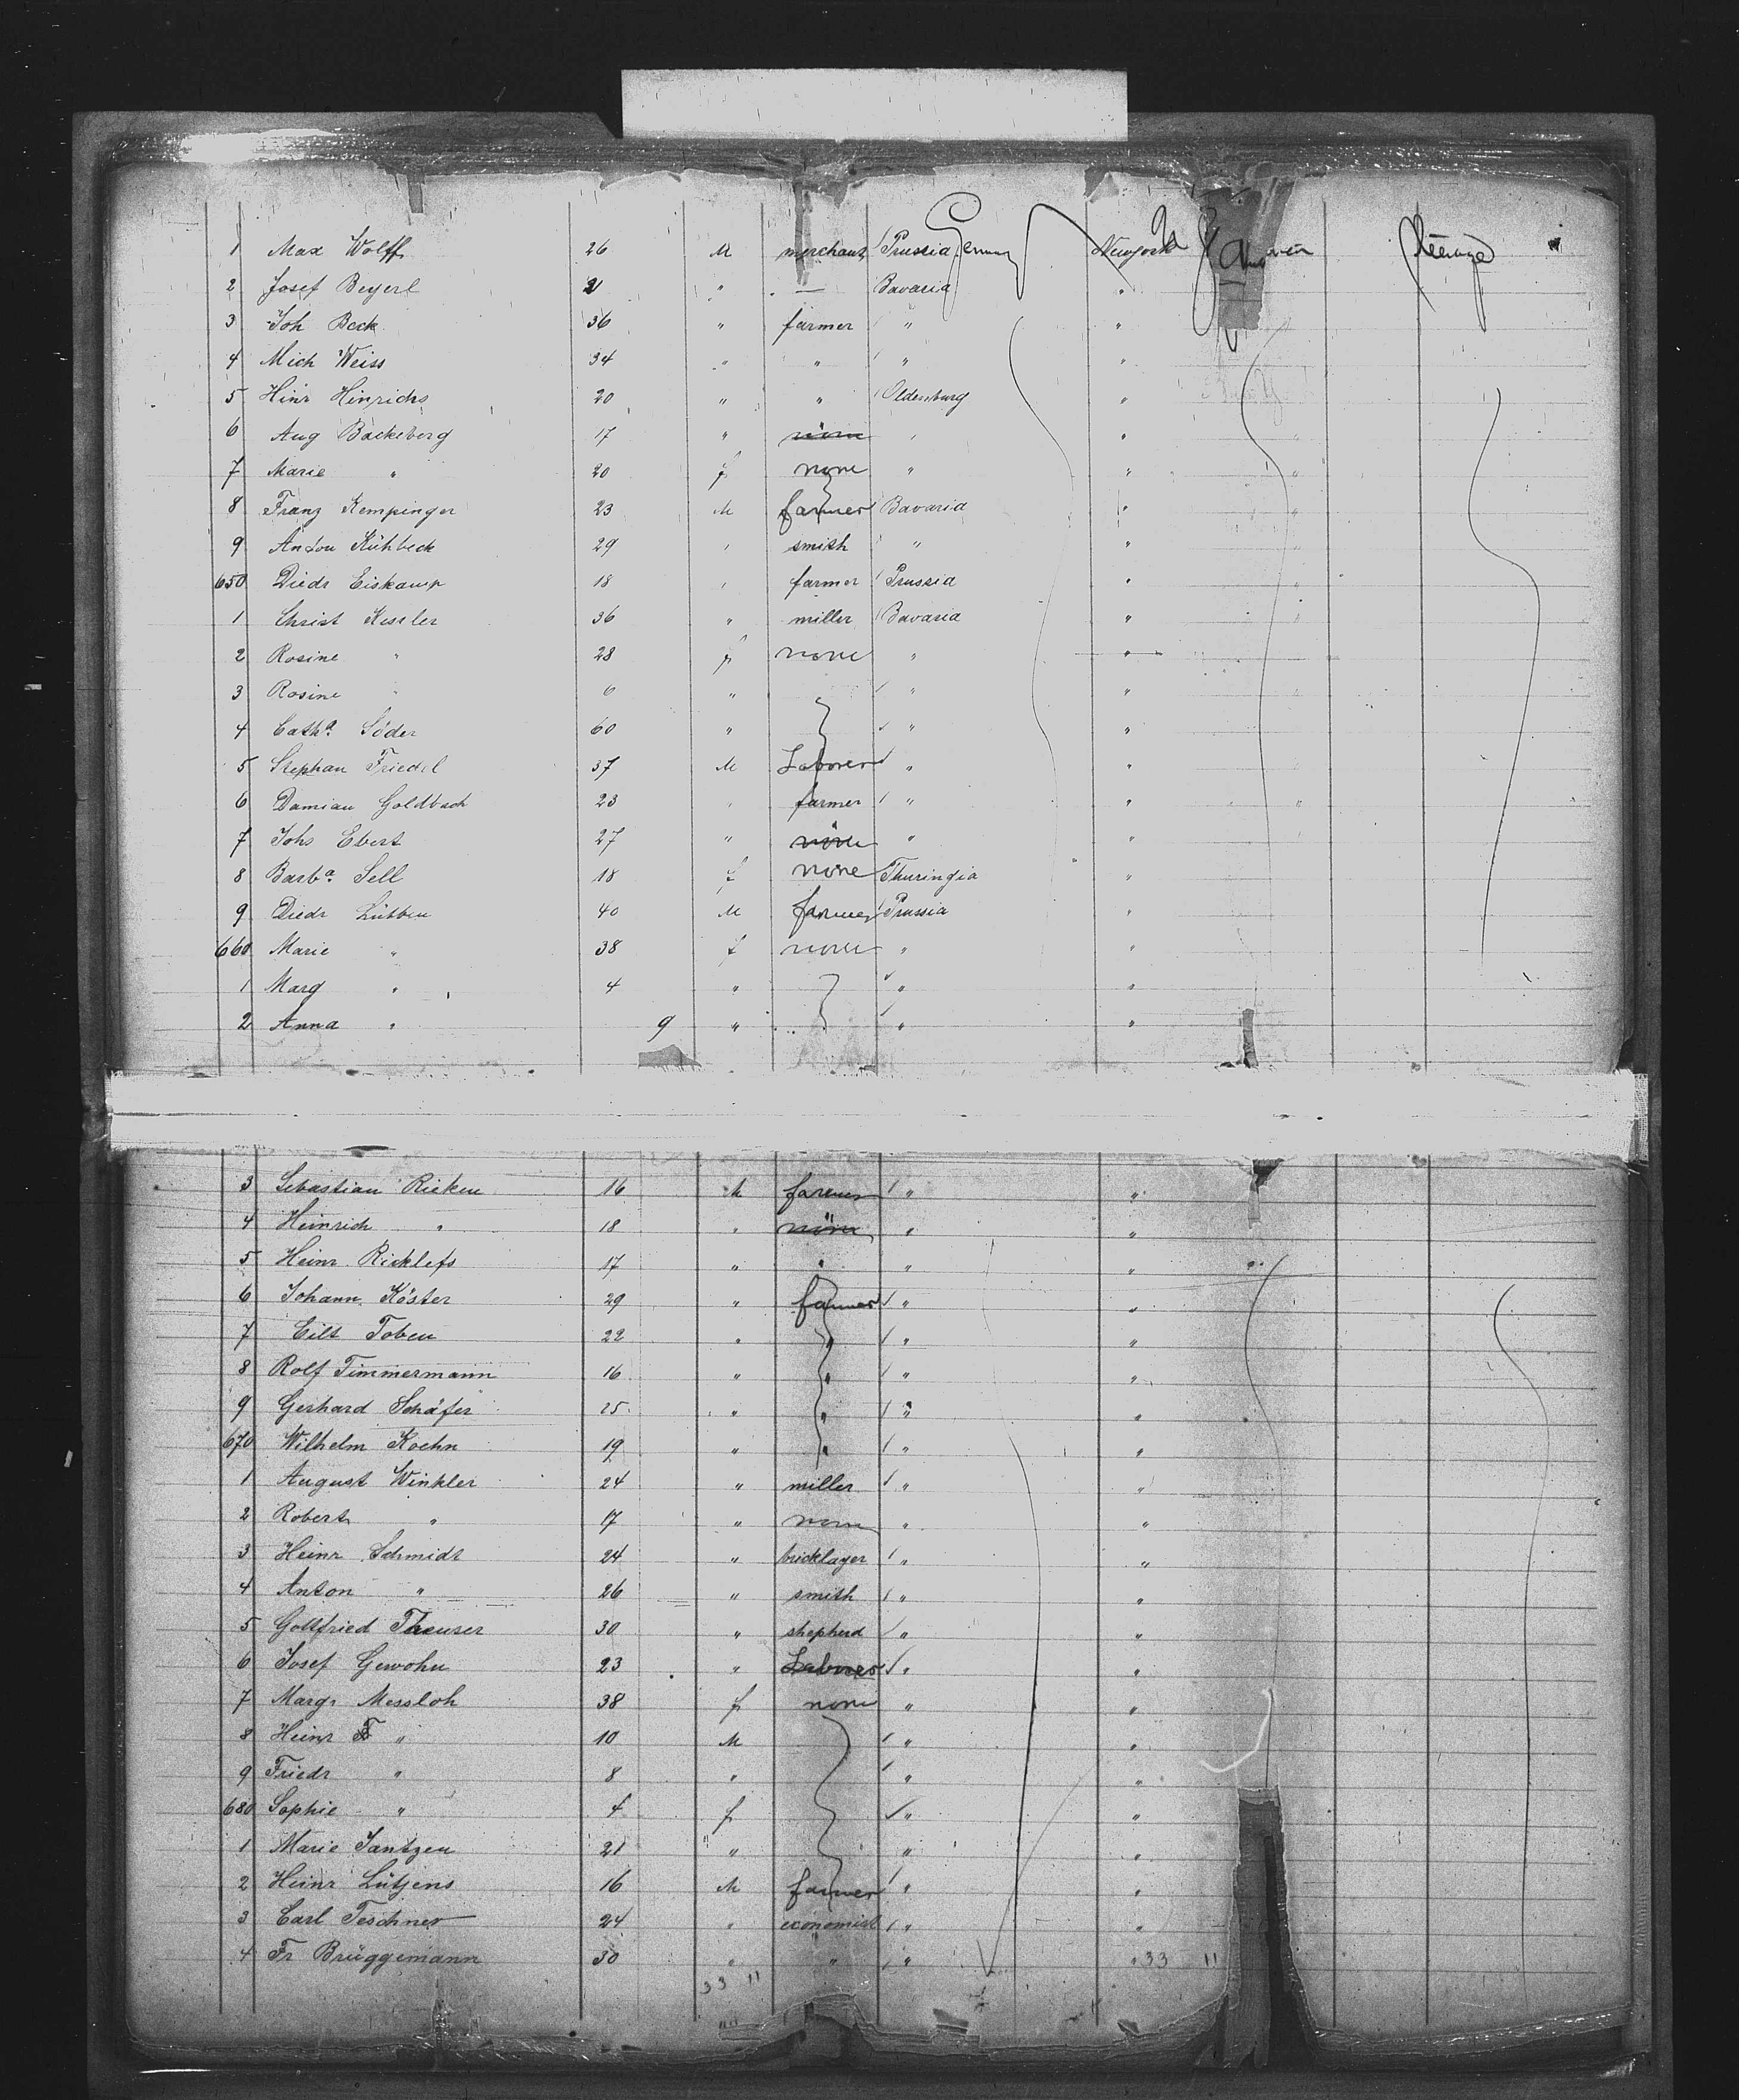 1 Max Wolff 26 M merchant Prussia Germany Newyork Steerage
2 Josef Beyerl 21 " — Bavaria "
3 Joh Beck 36 " farmer " "
4 Mich Weiss 34 " " " "
5 Hinr Hinrichs 20 " " Oldenburg "
6 Aug Backeberg 17 " none " "
7 Marie " 20 f none " " "
8 Franz Kempinger 23 M farmer Bavaria " "
9 Anton Kühbeck 29 " smith " " "
650 Diedr Eiskamp 18 " farmer Prussia " "
1 Christ Kessler 36 " miller Bavaria "
2 Rosine " 28 f none " "
3 Rosine " 6 " " "
4 Catha. Söder 60 " " "
5 Stephan Friedel 37 M Laborer " "
6 Damian Goldbach 23 " farmer " " "
7 Johs Ebert 27 " none " "
8 Barba. Sell 18 f none Thuringia "
9 Diedr Lübben 40 M farmer Prussia "
660 Marie " 38 f none " "
1 Marg " 4 " " "
2 Anna " 9 " " "
3 Sebastian Rieken 16 M farmer " "
4 Heinrich " 18 " none " "
5 Heinr. Ricklefs 17 " " " "
6 Johann Köster 29 " farmer " "
7 Eilt Toben 22 " " " "
8 Rolf Timmermann 16 " " " "
9 Gerhard Schäfer 25 " " " "
670 Wilhelm Koehn 19 " " " "
1 August Winkler 24 " miller " "
2 Robert " 17 " none " "
3 Heinr Schmidt 24 " bricklayer " "
4 Anton " 26 " smith " "
5 Gottfried Theuser 30 " shepherd " "
6 Josef Gewohn 23 " Laborer " "
7 Margr Messloh 38 f none " "
8 Heinr F " 10 M " "
9 Friedr " 8 " " "
680 Sophie " 4 f " "
1 Marie Jantzen 21 " " "
2 Heinr Lütjens 16 M farmer " "
3 Carl Teschner 24 " economist " "
4 Fr Brüggemann 30 " " " " 33 11
33 11